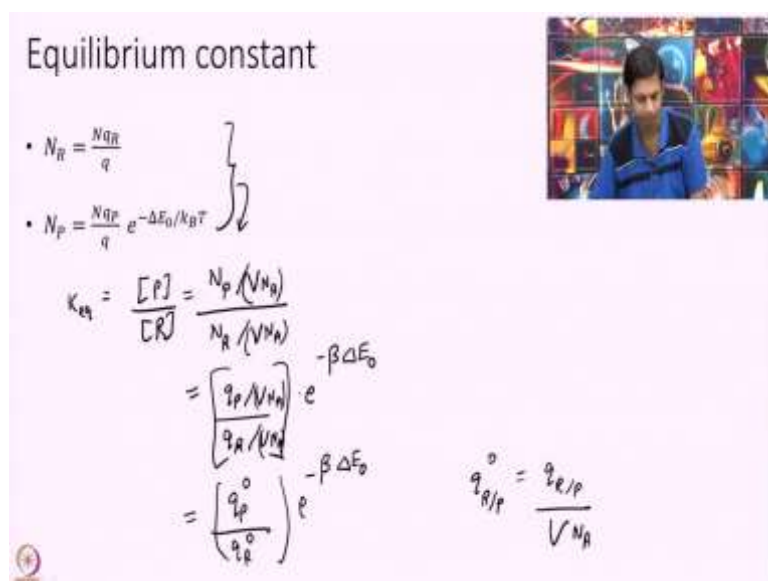 Equilibrium constant
• N_R = Nq_R / q
• N_P = Nq_P / q e^{-ΔE_0/k_BT}
K_eq = [P] / [R] = N_P/(VN_A) / N_R/(VN_A)
= [q_P/(VN_A) / q_R/(VN_A)] · e^{-βΔE_0}
= (q_P^0 / q_R^0) e^{-βΔE_0}
q_{R/P}^0 = q_{R/P} / VN_A